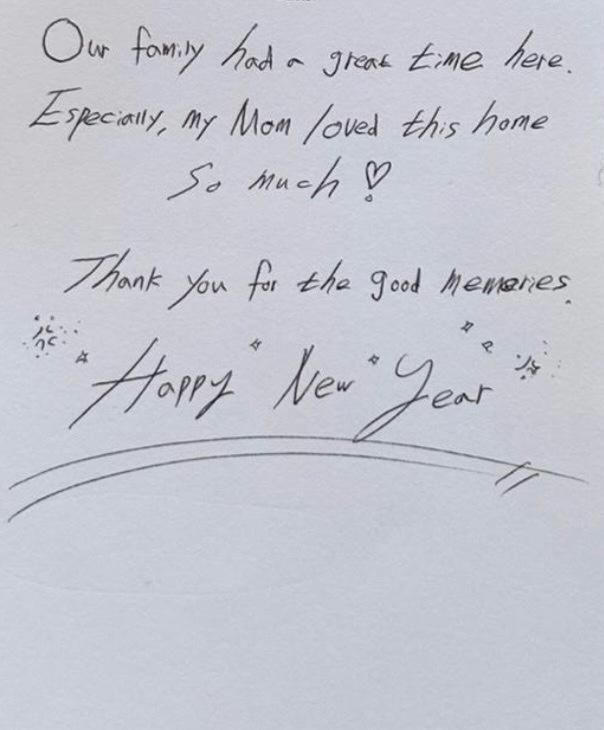 Our family had a great time here.
Especially, my Mom loved this home
so much ♡
Thank you for the good memories.
Happy New Year